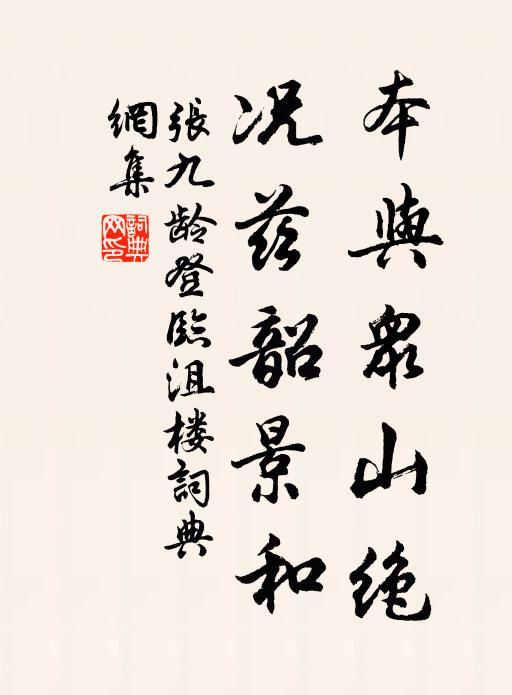 本與眾山絶
況茲韶景和
張九龄登臨沮楼詞典
網集
詞典
网印